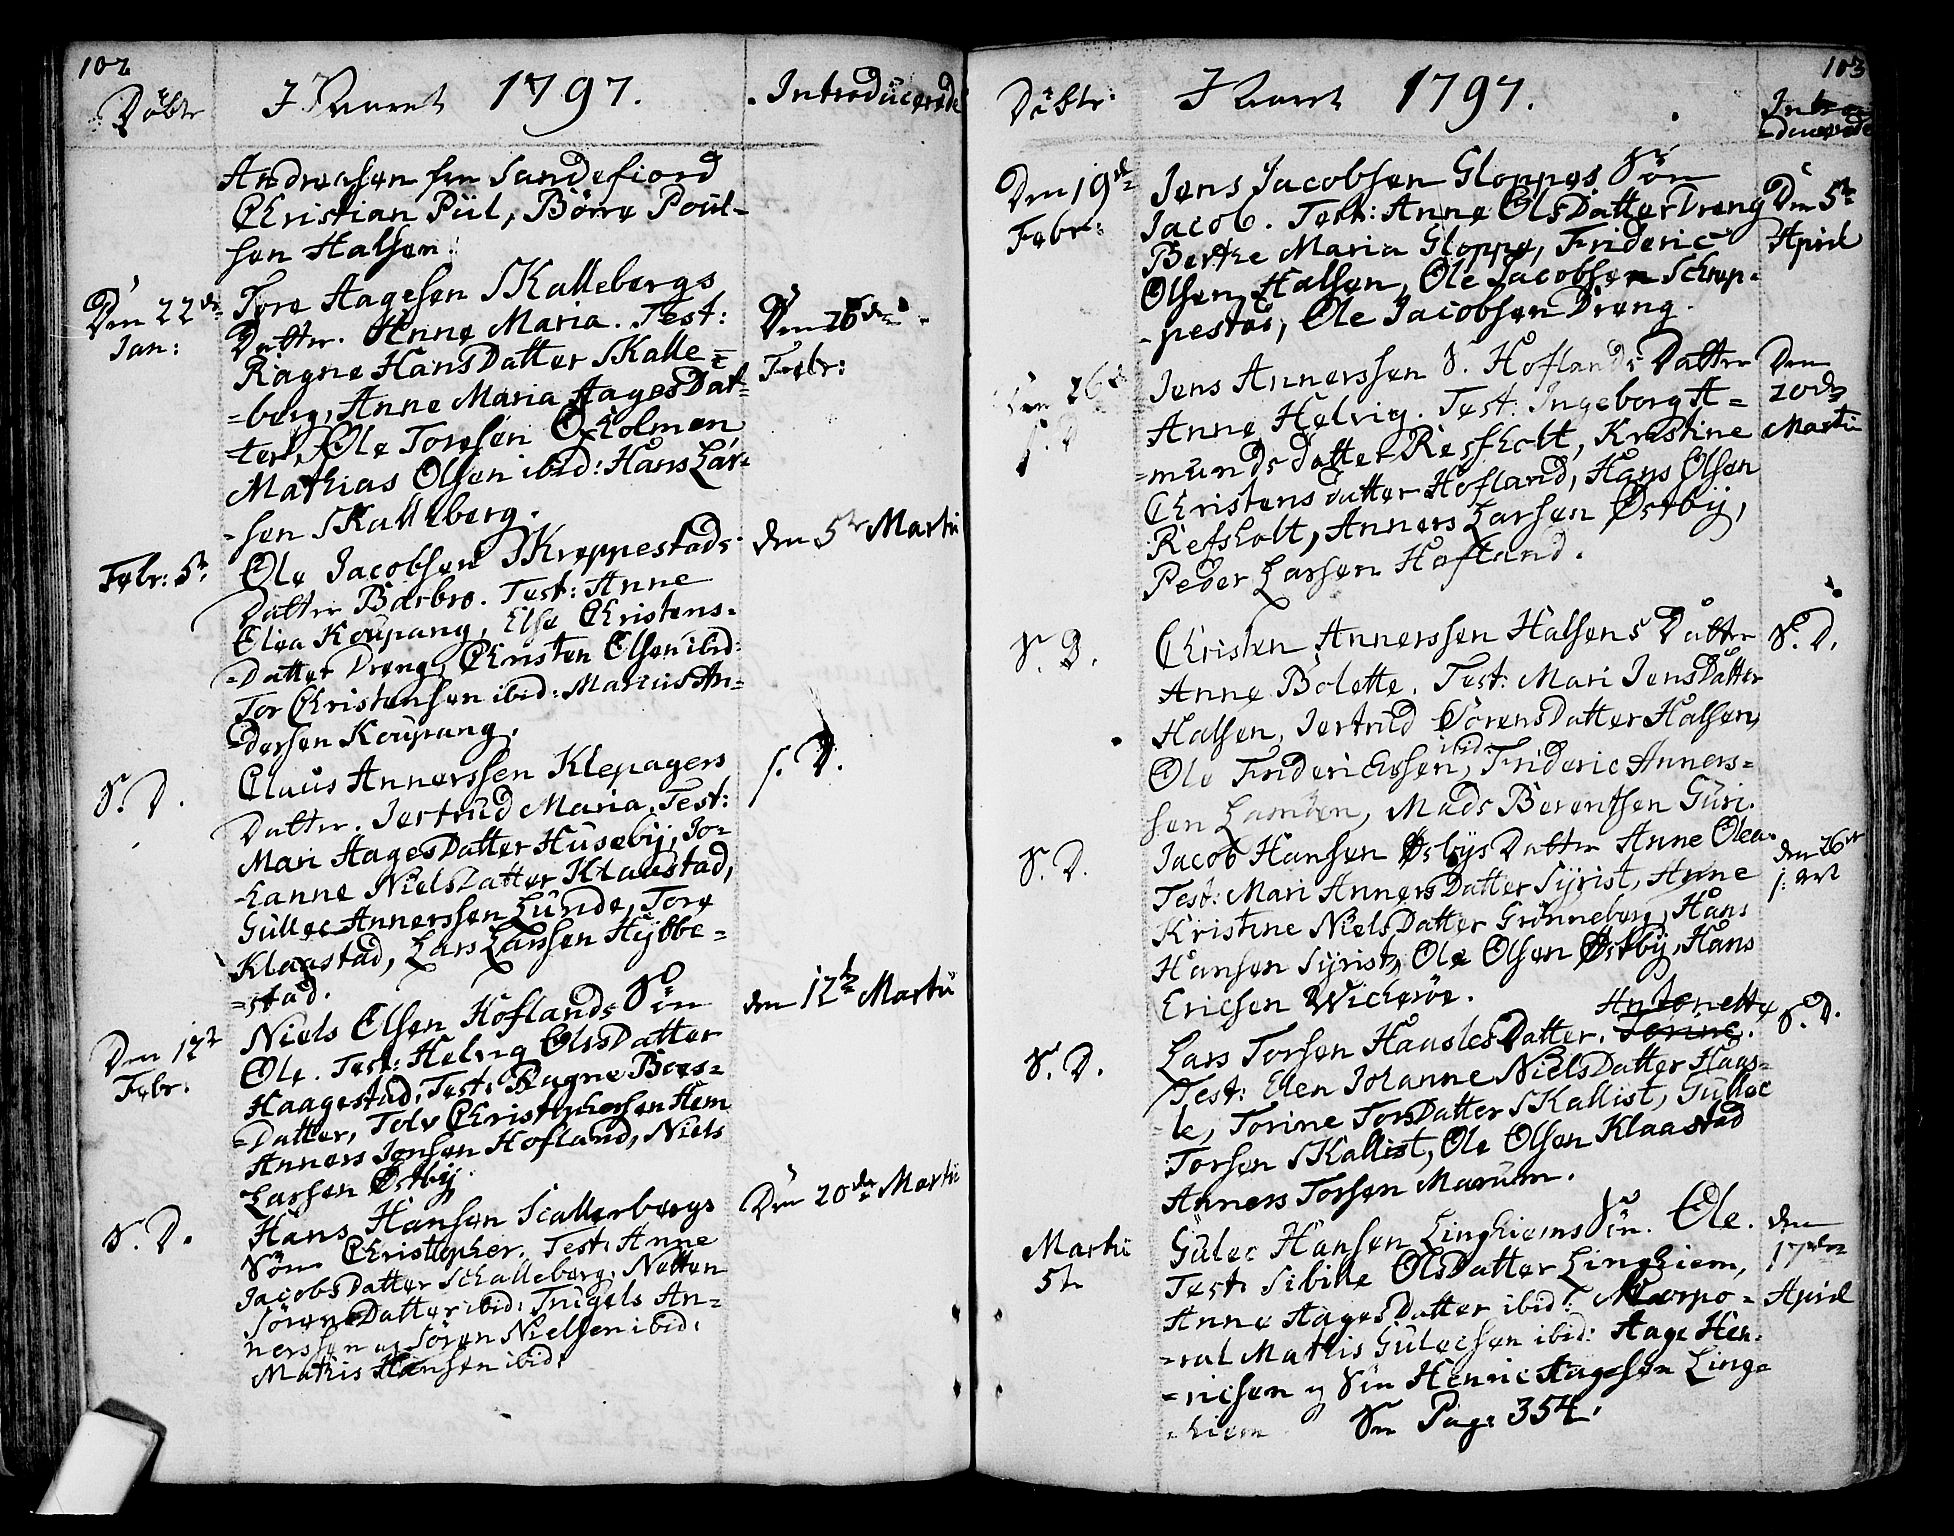 102
Döbte
I Aaret 1797.
Introducerede
Andreasen fra Sandefiord
Christian Piil, Börre Poul-
sen Halsen:
Den 22de
Jan:
Tore Aagesen Skallebergs
Datter. Anne Maria. Test:
Ragne HansDatter Skalle=
=berg, Anne Maria AagesDat-
=ter, Ole Toresen Oxholmen
Mathias Olsen ibid: Hans Lar-
-sen Skalleberg.
Den 26de
Febr:
Febr: 5te
Ole Jacobsen Skreppestads
Datter Barbro. Test: Anne
Olea Koupang, Else Christens-
=Datter Dreng, Christen Olsen ibid:
Tor Christensen ibid: Marius An=
dersen Koupang.
den 5te Martii
S. D.
Claus Annerssen Klepagers
Datter. Jertrud Maria. Test:
Mari AagesDatter Huseby, Jo-
-hanne NielsDatter Klaastad,
Gullec Annerssen Lunde, Tore
Klaastad, Lars Larsen Hybbe=
=stad.
S. D.
Den 12te
Febr.
Niels Olsen Hoflands Sön
Ole. Test: Helvig OlsDatter
Haagestad, Test: Ragne Boes-
=Datter, Tolv Christophersen Hem
Anners Jonsen Hofland, Niels
Larsen Östby.
den 12te Martii
S. D.
Hans Hansen Scallebergs
Sön Christopher. Test: Anne
JacobsDatter Schalleberg, Netten
SörensDatter ibid: Trugels An=
nerssen og Sören Nielsen ibid:
Mathis Hansen ibid:
Den 20de Martii
103
Döbte:
I Aaret 1797.
Intro
=ducerede
Den 19de
Febr:
Jens Jacobsen Gloppes Sön
Jacob. Test: Anne OlsDatter Dreng
Berthe Maria Gloppe, Frideric
Olsen Halsen, Ole Jacobsen Schrep-
-pestad, Ole Jacobsen Dreng.
Den 5te
April
Den 26de
Jens Annerssen S. Hoflands Datter
Anne Helvig. Test: Ingeborg A=
=mundsdatter Refsholt, Kristine
Christensdatter Hofland, Hans Olsen
Refsholt, Anners Larsen Östby,
Peder Larsen Hofland.
Den
20de
Martii
S. D.
Christen Annerssen Halsens Datter
Anne Bolette. Test: Mari JensDatter
Halsen, Jertrud SörensDatter Halsen,
ibid:
Ole Fridericssen, Frideric Anners=
sen Lamöen, Mads Berentsen Guri.
S. D.
S. D.
Jacob Hansen ÖsbysDatter Anne Olea.
Test: Mari AnnersDatter Syrist, Anne
Kristine NielsDatter Grönneberg, Hans
Hansen Syrist, Ole Olsen Östby, Hans
Ericsen Wicheröe.
den 26de
S. D.
Antonette
Lars Torsen HaaslesDatter. Torine.
Test: Elen Johanne NielsDatter Haas-
=le, Torine TorsDatter Skallist, Gullec
Torsen Skallist, Ole Olsen Klaastad
Anners Torsen Marum.
S. D.
Martii
5te
Gulec Hansen Linghiems Sön. Ole.
Test: Sibille OlsDatter Linghiem,
Anne AagesDatter ibid: Korpo=
=ral Mathis Gulecsen ibid: Aage Hen-
=ricsen og Sön Henric Aagesen Ling=
=hiem Se Pag: 354.
den
17den
April